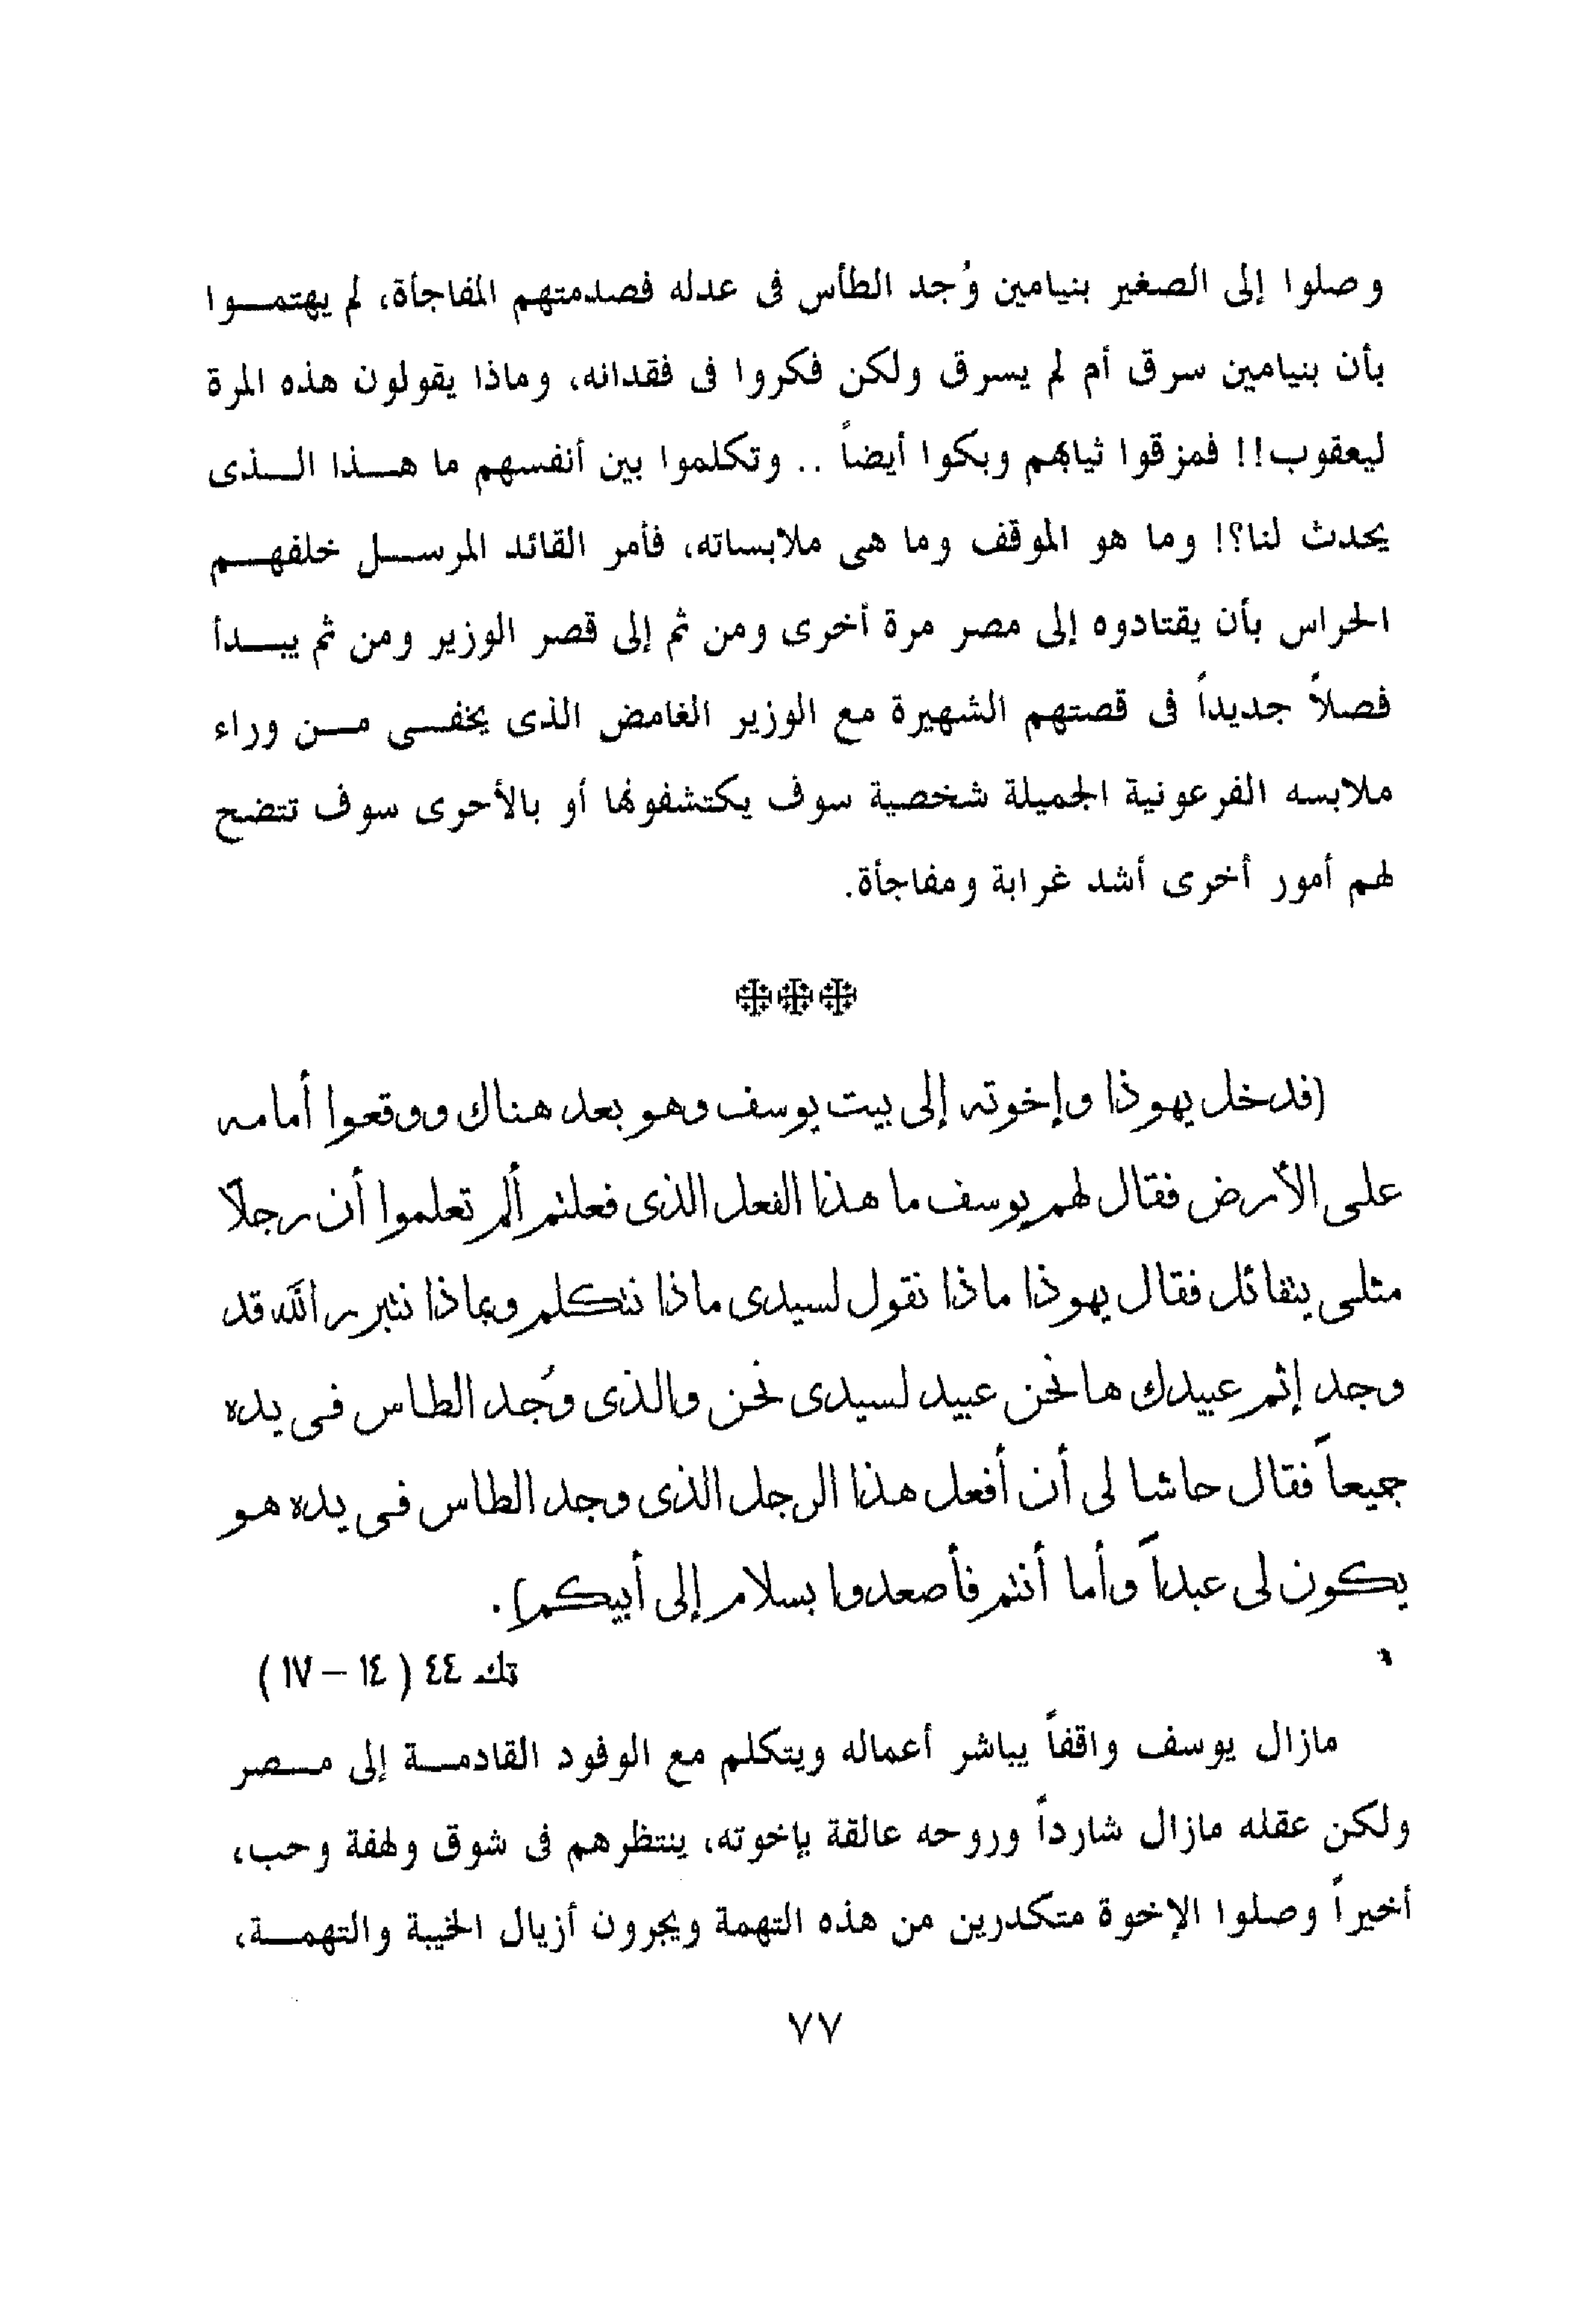 وصلوا إلى الصغير بنيامين وُجد الطأس فى عدله فصدمتهم المفاجأة، لم يهتمـــوا
بأن بنيامين سرق أم لم يسرق ولكن فكروا فى فقدانه، وماذا يقولون هذه المرة
ليعقوب!! فمزقوا ثيابهم وبكوا أيضاً .. وتكلموا بين أنفسهم ما هـــذا الـــذى
يحدث لنا؟! وما هو الموقف وما هى ملابساته، فأمر القائد المرســـل خلفهـــم
الحراس بأن يقتادوه إلى مصر مرة أخرى ومن ثم إلى قصر الوزير ومن ثم يبـــدأ
فصلاً جديداً فى قصتهم الشهيرة مع الوزير الغامض الذى يخفـــى مـــن وراء
ملابسه الفرعونية الجميلة شخصية سوف يكتشفونها أو بالأحرى سوف تتضح
لهم أمور أخرى أشد غرابة ومفاجأة.
(فدخل يهوذا وإخوته إلى بيت يوسف وهو بعد هناك ووقعوا أمامه
على الأرض فقال لهم يوسف ما هذا الفعل الذى فعلتم ألم تعلموا أن رجلاً
مثلى يتفائل فقال يهوذا ماذا نقول لسيدى ماذا نتكلم وبماذا نتبرر الله قد
وجد إثم عبيدك ها نحن عبيد لسيدى نحن والذى وُجد الطاس فى يده
جميعاً فقال حاشا لى أن أفعل هذا الرجل الذى وجد الطاس فى يده هو
يكون لى عبداً وأما أنتم فأصعدوا بسلام إلى أبيكم).
تك ٤٤ ( ١٤ – ١٧ )
مازال يوسف واقفاً يباشر أعماله ويتكلم مع الوفود القادمـــة إلى مـــصر
ولكن عقله مازال شارداً وروحه عالقة بإخوته، ينتظرهم فى شوق ولهفة وحب،
أخيراً وصلوا الإخوة متكدرين من هذه التهمة ويجرون أزيال الخيبة والتهمـــة،
٧٧